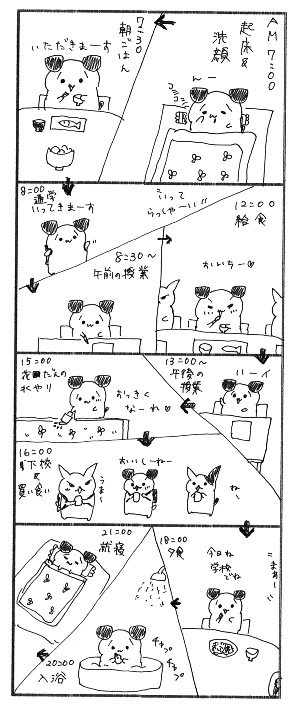 AM 7:00
起床&
洗顔
んー
コシコシ
7:30
朝ごはん
いただきまーす
8:00
通学
いってきまーす
いって
らっしゃーい!!
8:30～
午前の授業
12:00
給食
おいちー♡
13:00～
午後の
授業
ハーイ
15:00
花だんの
水やり
おっきく
なーれ♡
16:00
下校
&
買い食い
うまー
おいしーねー
ねー
18:00
夕食
今日ね
学校
でね
20:00
入浴
チャプ
チャプ
21:00
就寝